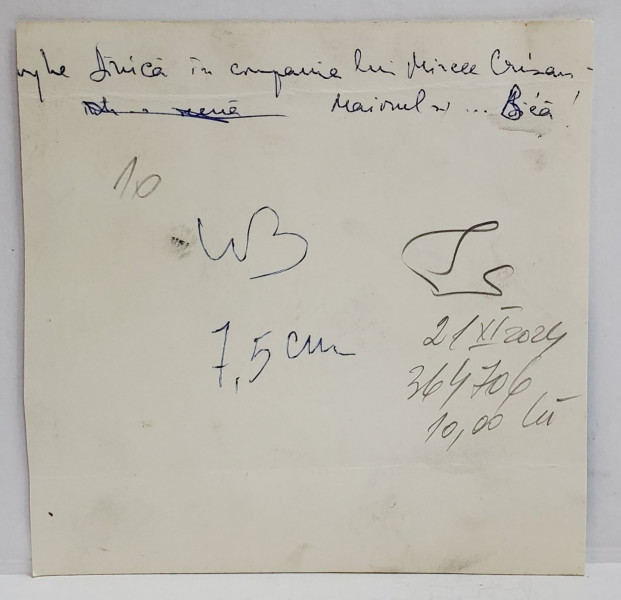 Dinică în compania lui Mircea Crișan -
Maiorul și ... Bică!
10
WB
7,5 cm
21 XI 2024
364706
10,00 lei